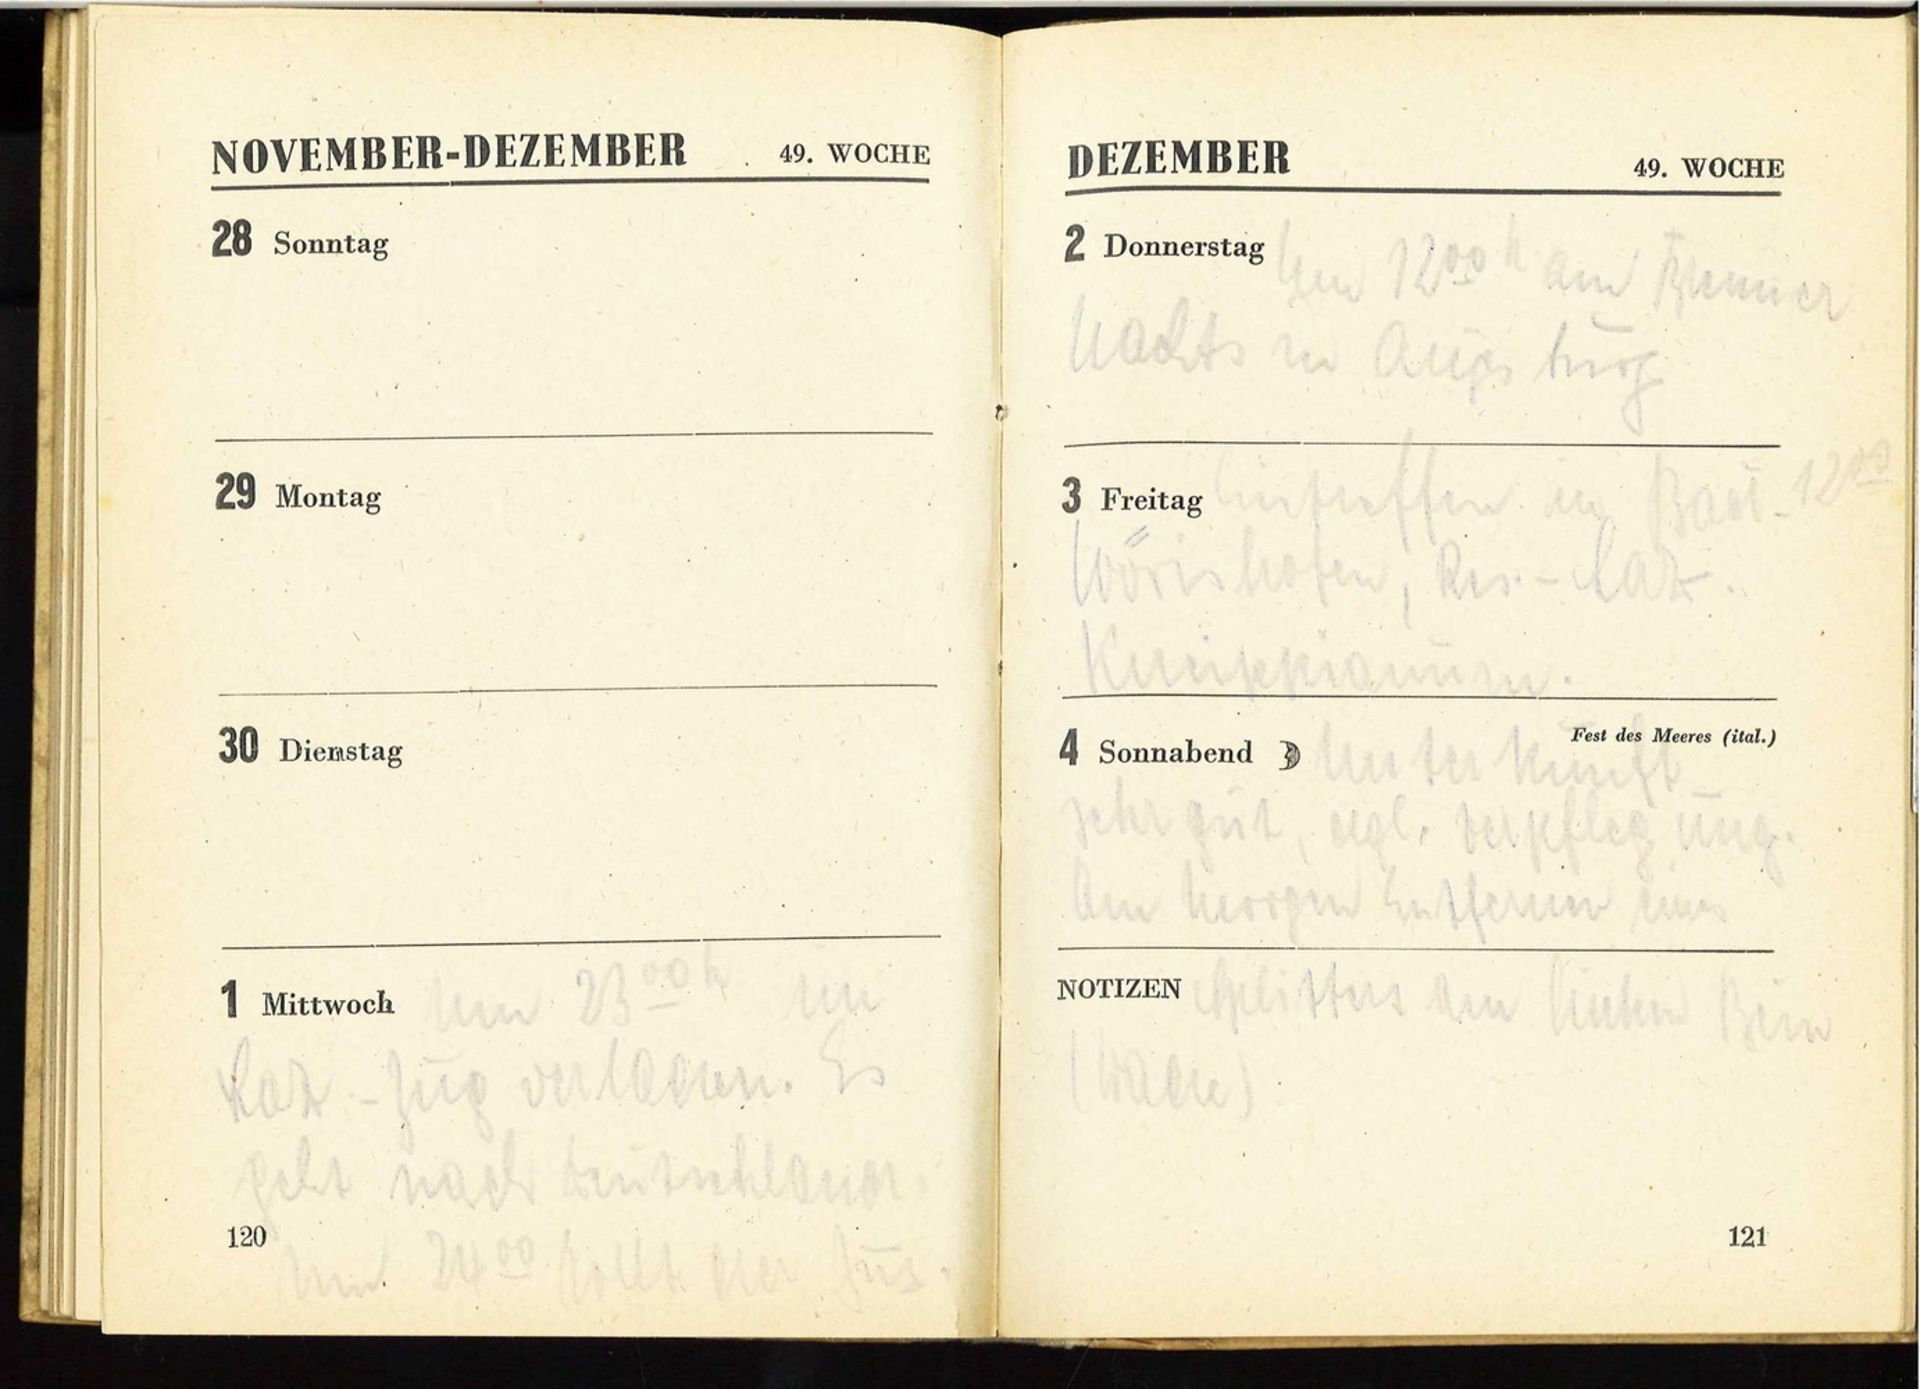 NOVEMBER-DEZEMBER 49. WOCHE
28 Sonntag
29 Montag
30 Dienstag
1 Mittwoch Um 23⁰⁰ h im
Laz-Zug verladen. Es
geht nach Deutschland.
Um 24⁰⁰ rollt der Zug.
120
DEZEMBER 49. WOCHE
2 Donnerstag Um 12⁰⁰ h am Brenner
Nachts in Augsburg
3 Freitag Eintreffen in Bad- 12⁰⁰
Wörishofen, Res.-Laz.
Kneippianum.
4 Sonnabend Fest des Meeres (ital.)
Unterkunft
sehr gut, vgl. Verpflegung.
Am Morgen Entfernen eines
NOTIZEN Splitters am linken Bein
(Wade)
121